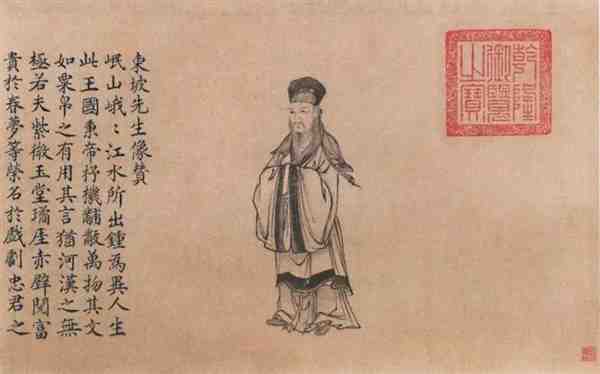 乾隆
御覽
之寶
東坡先生像贊
岷山峨〻江水所出鍾為異人生
此王國秉帝杼機黼黻萬物其文
如粟帛之有用其言猶河漢之無
極若夫紫微玉堂瓊崖赤壁閱富
貴於春夢等榮名於戲劇忠君之